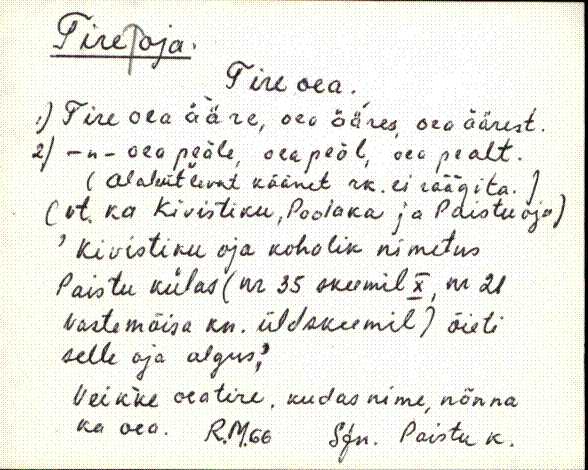 Tire oja.
Tire oea.
1) Tire oea ääre, oea ääres, oea äärest.
2) -n- oea peäle, oea peäl, oea pealt.
( Alalütlevat käänet rk. ei räägita. )
(vt. ka Kivistiku, Poolaka ja Paistu oja)
' Kivistiku oja kohalik nimetus
Paistu külas (nr 35 skeemil X, nr 21
Vastemõisa kn. üldskeemil) õieti
selle oja algus,'
Veik'ke oea tire, kudas nime, nõnna
ka oea. R.M. 66 Sjn. Paistu k.